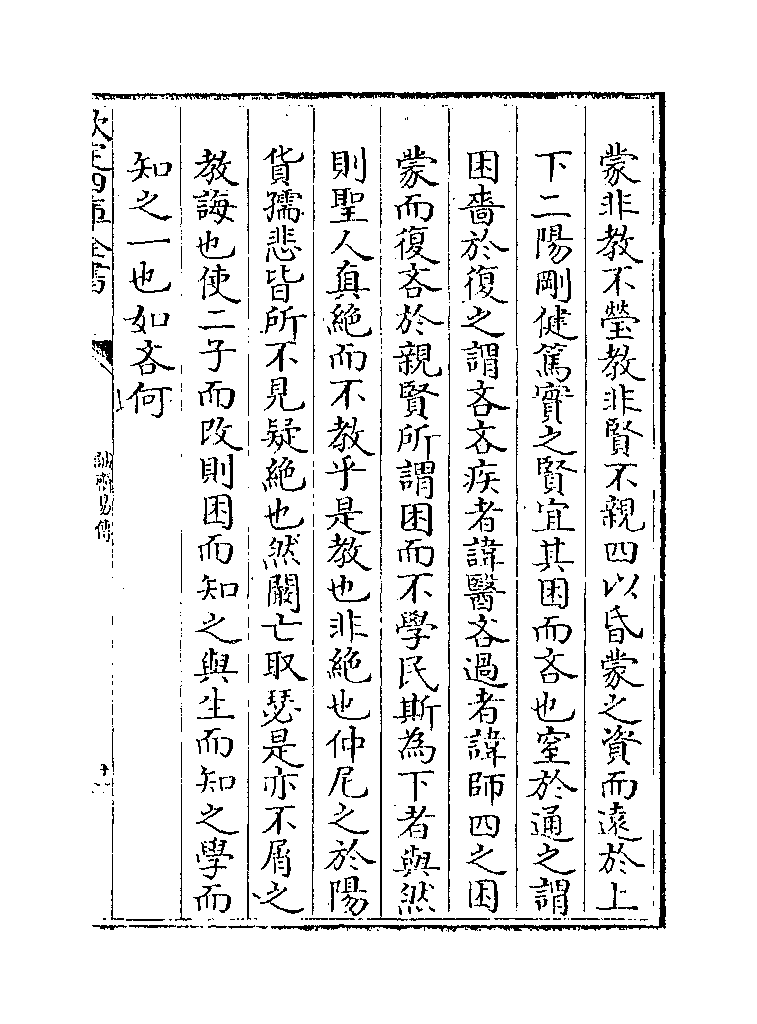 蒙非教不瑩教非賢不親四以昏蒙之資而遠於上
下二陽剛健篤實之賢宜其困而吝也窒於通之謂
困嗇於復之謂吝吝疾者諱醫吝過者諱師四之困
蒙而復吝於親賢所謂困而不學民斯為下者與然
則聖人真絶而不教乎是教也非絶也仲尼之於陽
貨孺悲皆所不見疑絶也然闞亡取瑟是亦不屑之
教誨也使二子而改則困而知之與生而知之學而
知之一也如吝何
欽定四庫全書
誠齋易傳
十一